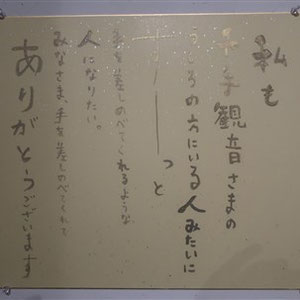 私も
千手観音さまの
うしろの方にいる人みたいに
すーーーっと
手を差しのべてくれるような
人になりたい。
みなさま、手を差しのべてくれて
ありがとうございます